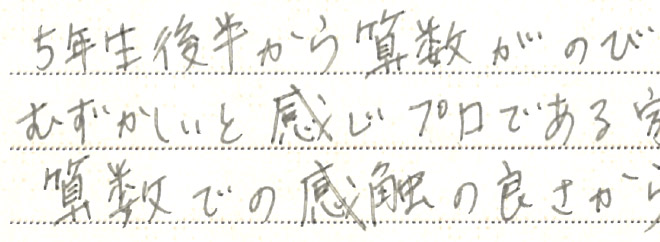 5年生後半から算数がのび
むずかしいと感じプロである
算数での感触の良さから